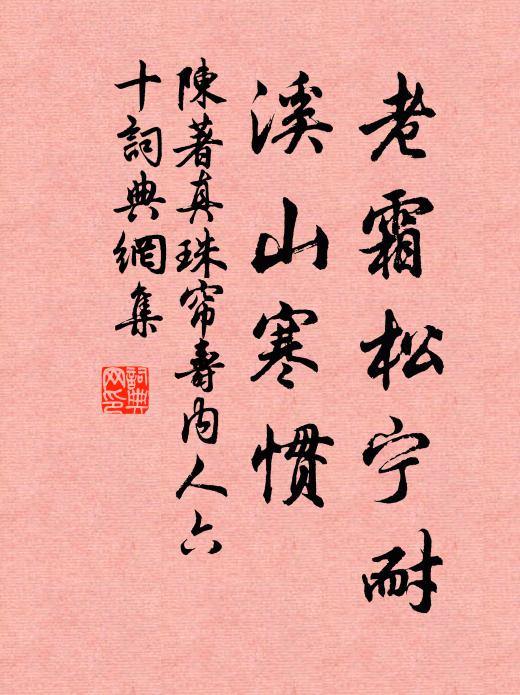 老霜松宁耐
溪山寒惯
陳著真珠帘壽内人六
十詞典網集
詞典网印